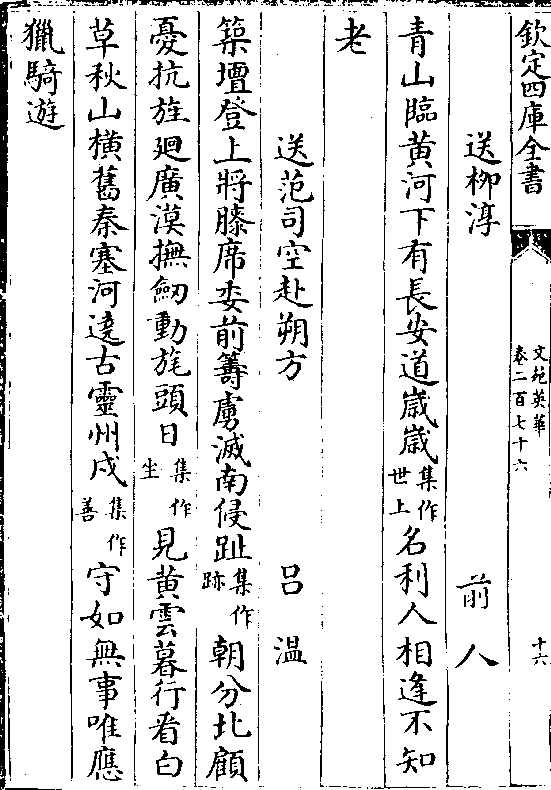 欽定四庫全書
文苑英華
卷二百七十六
十六
送栁淳
前人
青山臨黄河下有長安道嵗嵗集作世上名利人相逢不知
老
送范司空赴朔方
吕温
築壇登上將膝席委前籌虜滅南侵趾集作跡朝分北顧
憂抗旌廻廣漠撫劒動旄頭日集作坐見黄雲暮行看白
草秋山横舊秦塞河遶古靈州戍集作善守如無事唯應
獵騎遊